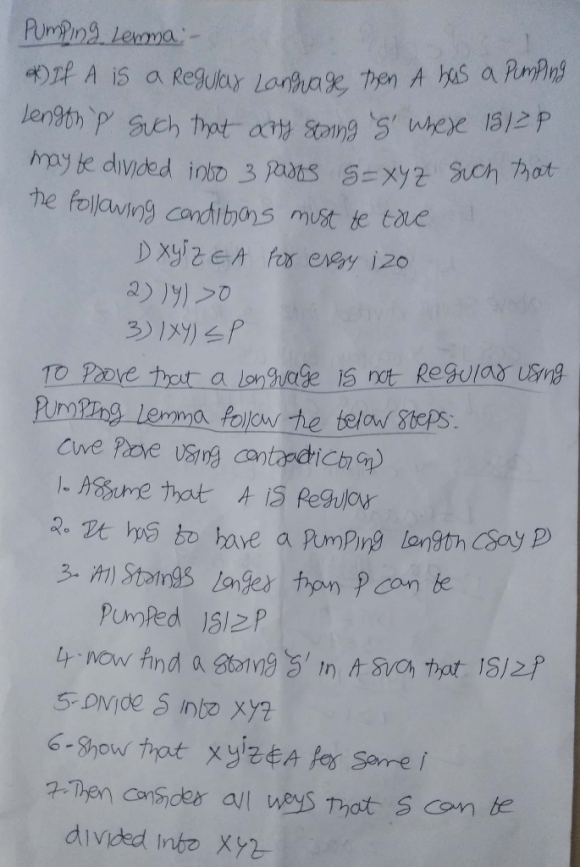 Pumping Lemma:-
*) If A is a Regular Language, then A has a Pumping
Length 'P' such that any string 'S' where |S|≥P
may be divided into 3 parts S=XYZ such that
the following conditions must be true
1) XYⁱZ ∈ A for every i≥0
2) |Y| >0
3) |XY| ≤ P
To Prove that a language is not Regular using
PUMPING Lemma follow the below steps:
(we Prove using contradiction)
1. Assume that A is Regular
2. It has to have a Pumping Length (say P)
3. All strings longer than P can be
Pumped |S|≥P
4. Now find a string 'S' in A such that |S|≥P
5-Divide S into XYZ
6-Show that XYⁱZ∉A for some i
7-Then consider all ways that S can be
divided into XYZ